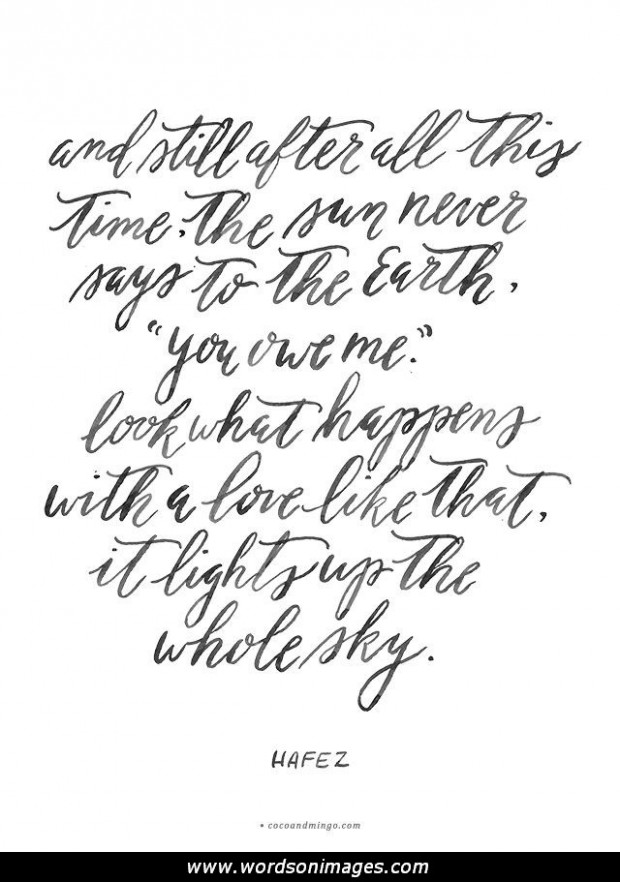 and still after all this
time, the sun never
says to the Earth,
"you owe me."
look what happens
with a love like that,
it lights up the
whole sky.
HAFEZ
• cocoandmingo.com
www.wordsonimages.com